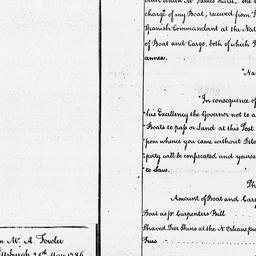 charge of my Boat, received from
Spanish Commandant at the Nat
of Boat and Cargo, both of which
annex.
"Na
"In consequence of
his Excellency the Governor not to a
Boats to pass or Land at this Post
from whence you came without
party will be confiscated and yourse
to Law.
Amount of Boat and Carg
Boat as pr Carpenters Bill
at the N Orleans
Mr. A. Fowler
Pittsburgh 25th May 1786